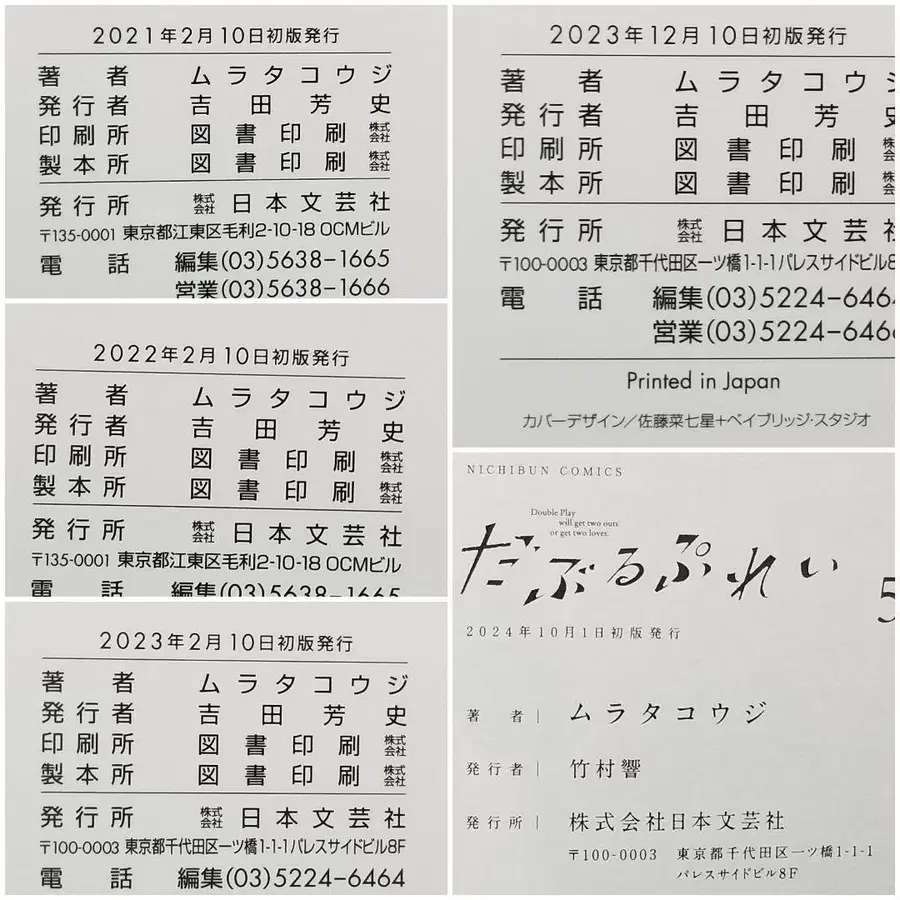 2021年2月10日初版発行
著者 ムラタコウジ
発行者 吉田芳史
印刷所 図書印刷株式会社
製本所 図書印刷株式会社
発行所 株式会社日本文芸社
〒135-0001 東京都江東区毛利2-10-18 OCMビル
電話 編集(03)5638-1665
営業(03)5638-1666
2022年2月10日初版発行
著者 ムラタコウジ
発行者 吉田芳史
印刷所 図書印刷株式会社
製本所 図書印刷株式会社
発行所 株式会社日本文芸社
〒135-0001 東京都江東区毛利2-10-18 OCMビル
電話 編集(03)5638-1665
2023年2月10日初版発行
著者 ムラタコウジ
発行者 吉田芳史
印刷所 図書印刷株式会社
製本所 図書印刷株式会社
発行所 株式会社日本文芸社
〒100-0003 東京都千代田区一ツ橋1-1-1パレスサイドビル8F
電話 編集(03)5224-6464
2023年12月10日初版発行
著者 ムラタコウジ
発行者 吉田芳史
印刷所 図書印刷株
製本所 図書印刷株
発行所 株式会社日本文芸社
〒100-0003 東京都千代田区一ツ橋1-1-1パレスサイドビル8
電話 編集(03)5224-6464
営業(03)5224-6466
Printed in Japan
カバーデザイン/佐藤菜七星+ベイブリッジ・スタジオ
NICHIBUN COMICS
Double Play
will get two outs
or get two loves.
だぶるぷれい 5
2024年10月1日初版発行
著者| ムラタコウジ
発行者| 竹村響
発行所| 株式会社日本文芸社
〒100-0003 東京都千代田区一ツ橋1-1-1
パレスサイドビル8F